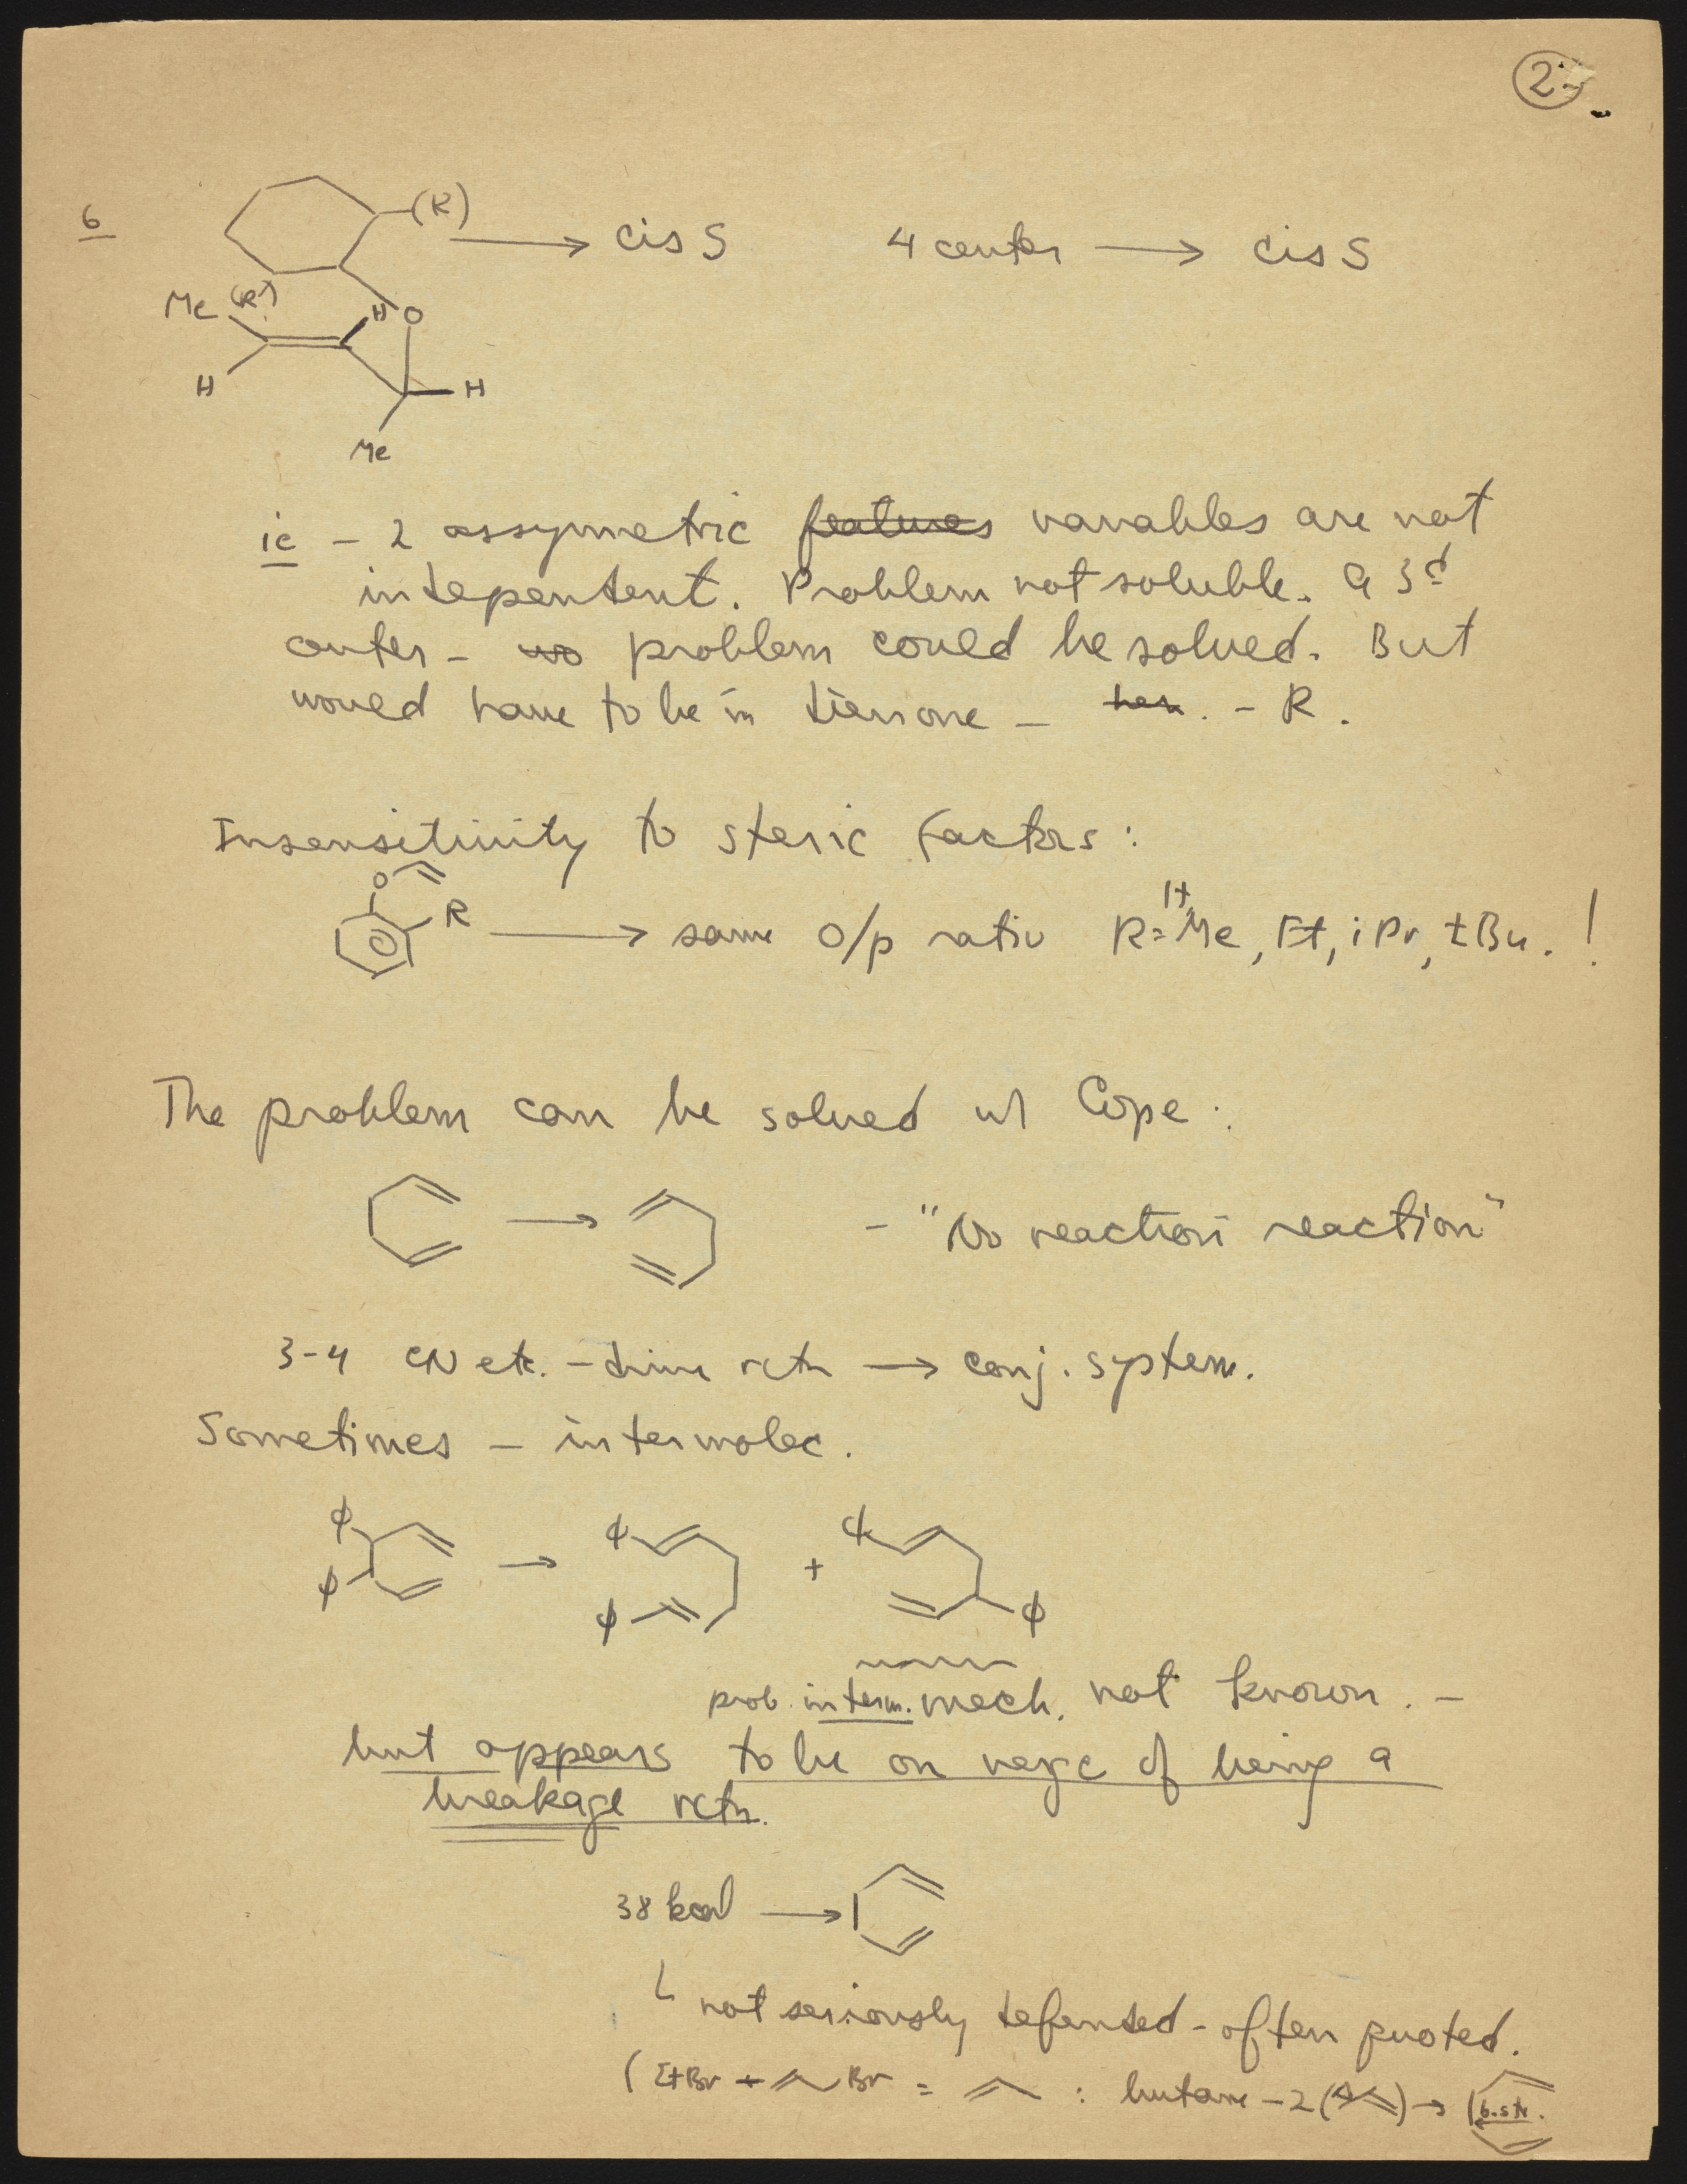 2
6
(R) → cis S 4 center → cis S
Me (R)
H O
H H
Me
ie - 2 assymetric features variables are not
independent. Problem not soluble. A 3d
center - no problem could be solved. But
would have to be in dienone - her. - R.
Insensitivity to steric factors:
O
R → same o/p ratio R = H, Me, Et, iPr, tBu. !
The problem can be solved w/ Cope:
→ - "No reaction reaction"
3-4 CN etc. - driv rctn → conj. system.
Sometimes - intermolec.
φ φ φ
→ +
φ φ φ
prob. interm. mech. not known. -
but appears to be on verge of being a
breakage rctn.
38 kcal →
not seriously defended - often quoted.
(EtBr + Br = : butane - 2 ( ) → (b.str.